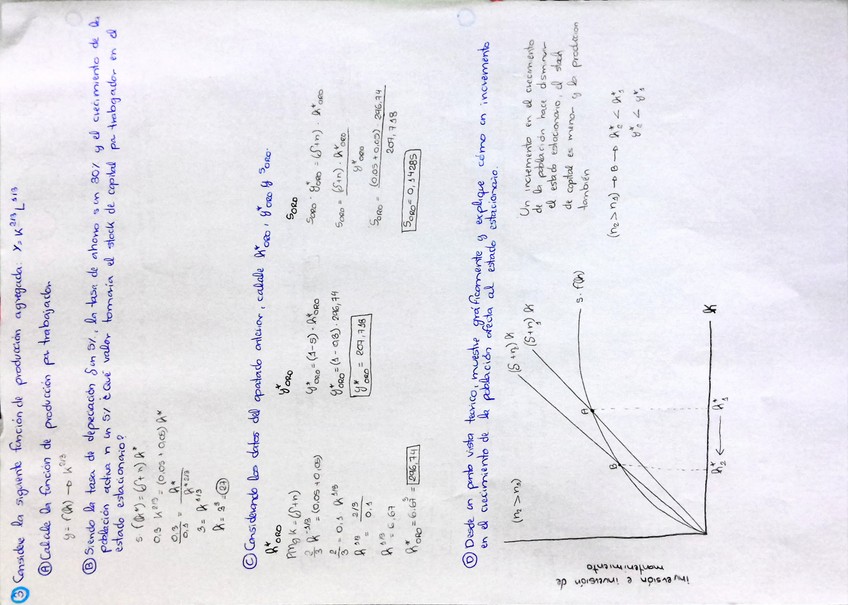 ③ Considere la siguiente función de producción agregada: Y = K^2/3 L^1/3
Ⓐ Calcule la función de producción por trabajador
y = f(k) → k^2/3
Ⓑ Siendo la tasa de depreciación δ un 5%, la tasa de ahorro s un 30% y el crecimiento de la
población activa n un 5% ¿Qué valor tomaría el stock de capital por trabajador en el
estado estacionario?
s · f(k*) = (δ+n) k*
0,3 k^2/3 = (0,05 + 0,05) k*
0,3 / 0,1 = k* / k*^2/3
3 = k*^1/3
k = 3^3 = 27
Ⓒ Considerando los datos del apartado anterior, calcule k*ORO, y*ORO y sORO.
k*ORO
PMg K = (δ+n)
2/3 k^-1/3 = (0,05 + 0,05)
2/3 = 0,1 k^1/3
k^1/3 = 2/3 / 0,1
k^1/3 = 6,67
k*ORO = 6,67^3 = 296,74
y*ORO
y*ORO = (1-s) · k*ORO
y*ORO = (1-0,3) · 296,74
y*ORO = 207,718
sORO
sORO · y*ORO = (δ+n) · k*ORO
sORO = (δ+n) · k*ORO / y*ORO
sORO = (0,05 + 0,05) · 296,74 / 207,718
sORO = 0,14285
Ⓓ Desde un punto vista teórico, muestre gráficamente y explique cómo un incremento
en el crecimiento de la población afecta al estado estacionario.
inversión e inversión de
mantenimiento
(n2 > n1)
(δ+n2) k
(δ+n1) k
s · f(k)
A
B
k*2 ← k*1
K
Un incremento en el crecimiento
de la población hace disminuir
el estado estacionario, el stock
de capital es menor y la producción
también
(n2 > n1) → B → k*2 < k*1
y*2 < y*1